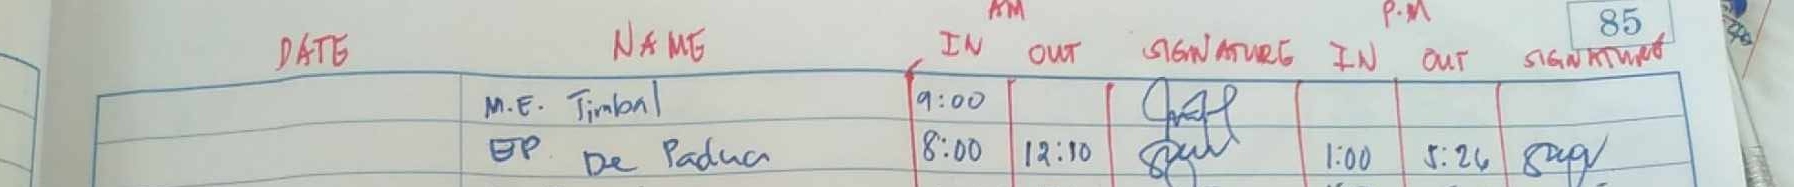 AM P.M 85
DATE NAME IN OUT SIGNATURE IN OUT SIGNATURE
M.E. Timbal 9:00
EP. De Padua 8:00 12:10 1:00 5:26